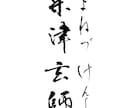 米津玄師
よねづけんし